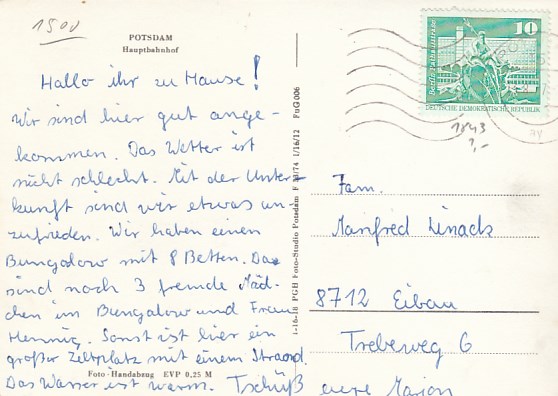 1500
POTSDAM
Hauptbahnhof
Hallo ihr zu Hause!
Wir sind hier gut ange-
kommen. Das Wetter ist
nicht schlecht. Mit der Unter-
kunft sind wir etwas un-
zufrieden. Wir haben einen
Bungalow mit 8 Betten. Da
sind noch 3 fremde Mäd-
chen im Bungalow und Frau
Hennig. Sonst ist hier ein
großer Zeltplatz mit einem Strand.
Das Wasser ist warm. Tschüß eure Marion
Foto-Handabzug EVP 0,25 M
I-16-18 PGH Foto-Studio Potsdam F 30/74 1/16/12 FuG 006
10
DEUTSCHE DEMOKRATISCHE REPUBLIK
1843
1,-
Fam.
Manfred
8712 Eibau
Treberweg 6